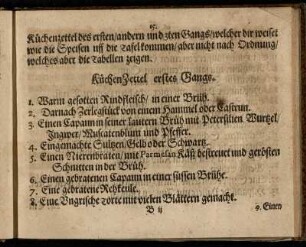 Küchenzettel des ersten/andern und 3ten Gangs/welcher dir weiset
wie die Speisen uff die Tafel kommen/aber nicht nach Ordnung/
welches aber die Tabellen zeigen.
Küchen Zettel erstes Gangs.
1. Warm gesotten Rindfleisch/in einer Brüh.
2. Darnach Zerlegstück von einem Hammel oder Castrun.
3. Einen Capaun in seiner lautern Brüh mit Petersilien Wurtzel
Ingwer/Muscatenblum und Pfeffer.
4. Eingemachte Sultzen Gelb oder Schwartz.
5. Einen Nierenbraten/mit Parmesan Käß bestreuet und gerösten
Schnitten in der Brüh.
6. Einen gebratenen Capaun in einer süssen Brühe.
7. Eine gebratene Rehkeule.
8. Eine Vngrische Torte mit vielen Blättern gemacht.
B ij
9. Einen